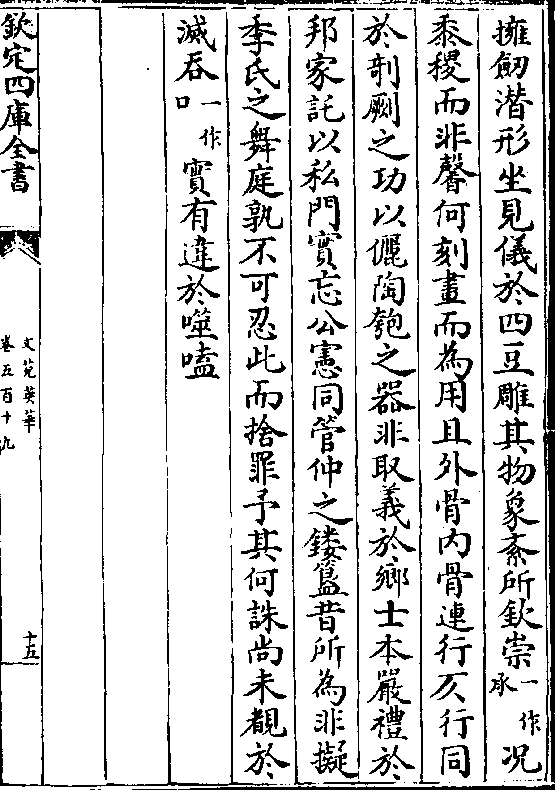 擁劒潛形坐見儀於四豆雕其物象紊所欽崇一作承况
黍稷而非馨何刻畫而為用且外骨内骨連行仄行同
於剞劂之功以儷陶匏之器非取義於鄉士本嚴禮於
邦家託以私門實忘公憲同管仲之鏤簋昔所為非擬
季氏之舞庭孰不可忍此而捨罪予其何誅尚未覩於
滅吞一作口實有違於噬嗑
欽定四庫全書
文苑英華
卷五百十九
十五